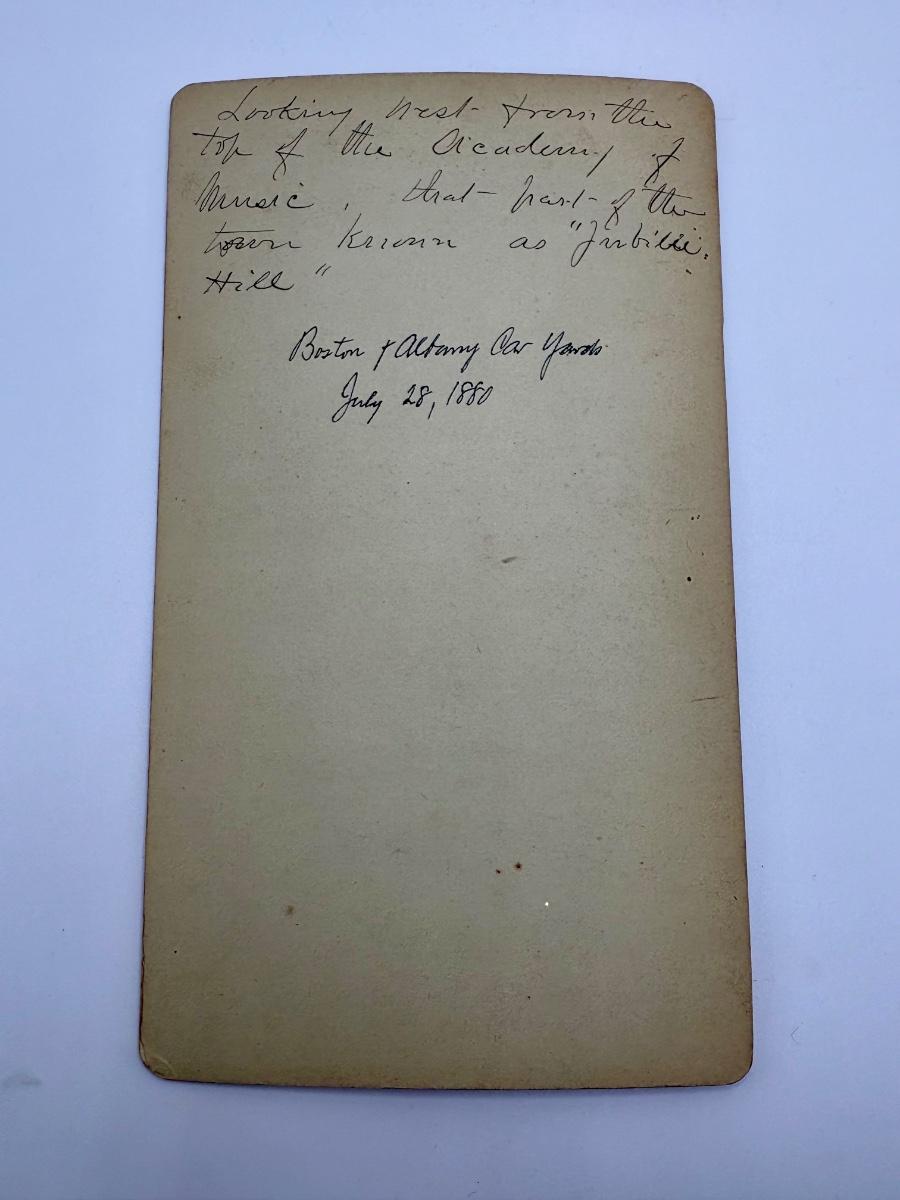 Looking west from the
top of the Academy of
Music, that part of the
town known as "Jubilee
Hill"
Boston & Albany Car Yards
July 28, 1880